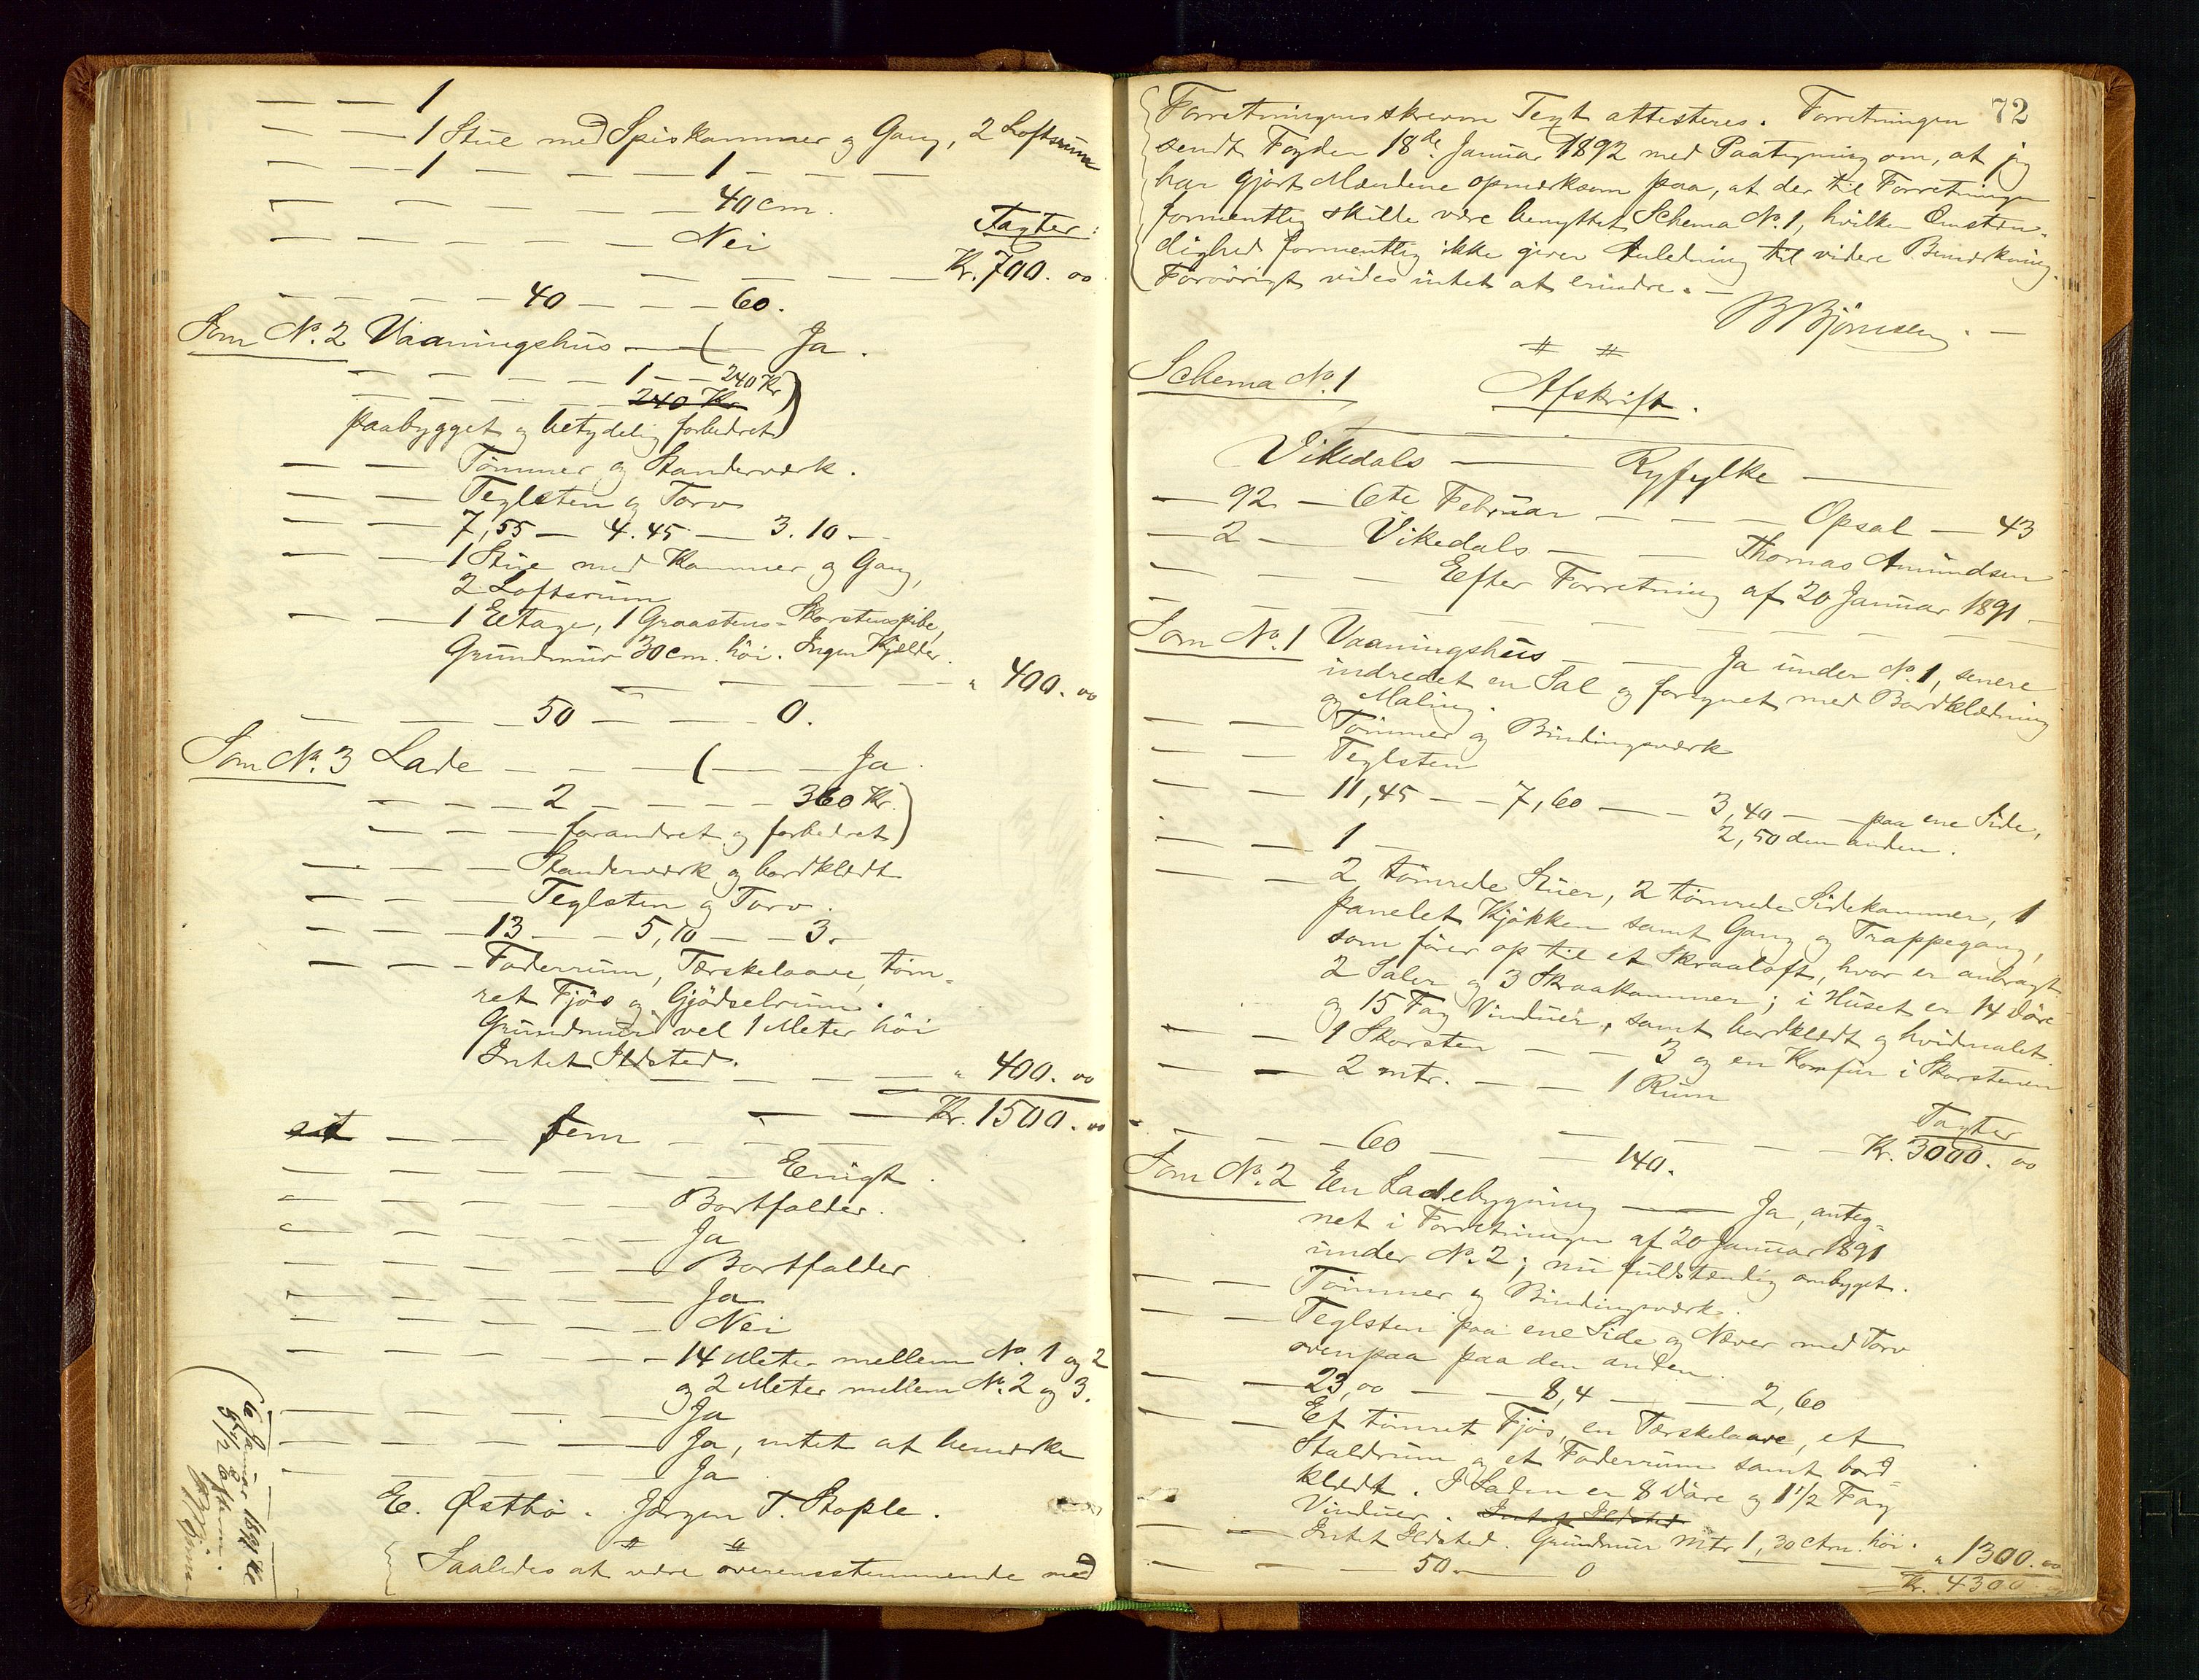 — — 1
— — 1 Stue med Spiskammer og Gang, 2 Loftsrum
— — 1 — — — — 1 — — —
— — — — — — 40 cm.
— — — — — — Nei Taxter:
— — — — Kr. 700. 00
— — — — 40 — — — 60.
Som No. 2 Vaaningshus — ( — Ja.
— — — — — 1 — — 240 Kr)
— — — — — 240 Kr
paabygget og betydelig forbedret)
— — Tømmer og Standerværk.
— — Teglsten og Torv
— — 7,55 — 4.45 — 3.10 —
— — 1 Stue med Kammer og Gang,
2 Loftsrum
— — 1 Etage, 1 Graastens-Skorstenspibe,
Grundmur 30 cm. høi. Ingen Kjælder.
— — — — — " 400. 00
— — — 50 — — — 0.
Som No. 3 Lade — — — ( — — Ja.
— — — — 2 — — — — 360 Kr.)
— — — — forandret og forbedret)
— — — Standerværk og bordklædt
— — — Teglsten og Torv.
— — — 13 — — 5,10 — — 3.—
— — — Foderrum, Tærskelaave, tøm-
ret Fjøs og Gjødselrum.
Grundmur vel 1 Meter høi
Intet Ildsted. — — — — " 400. 00
— — Kr. 1500. 00
sit — — fem — — — —
— — — — — — — Enigt.
— — — — — — Bortfalder.
— — — — — — Ja
— — — — — — Bortfalder
— — — — — — Ja
— — — — — — Nei
— — — — — — 14 Meter mellem No. 1 og 2
og 2 Meter mellem No. 2 og 3.
— — — — — — Ja
— — — — — — Ja, intet at bemærke
— — — — — — Ja
E. Østbø. Jørgen T. Stople.
Saaledes at være overensstemmende med
72
Forretningens skrevne Text attesteres. Forretningen
sendt Fogden 18de Januar 1892 med Paategning om, at jeg
har gjort Mændene opmærksom paa, at der til Forretningen
formentlig skulle være benyttet Schema No. 1, hvilken Omstæn-
dighed formentlig ikke giver Anledning til videre Bemærkning.
Forøvrigt vides intet at erindre. —
B Bjørnsen. —
Schema No. 1
Afskrift.
Vikedals — Ryfylke —
— 92 — 6te Februar — — — Opsal — 43
— 2 — Vikedals — — Thomas Amundsen
— — — Efter Forretning af 20 Januar 1891 —
Som No. 1 Vaaningshus — — Ja under No. 1, senere
indredet en Sal og fornyet med Bordklædning
og Maling.
— — Tømmer og Bindingsværk
— — Teglsten
— — 11,45 — — 7,60 — — 3,40 — — paa ene Side,
2,50 den anden.
— — 1 —
— — 2 tømrede Stuer, 2 tømrede Sidekammer, 1
panelet Kjøkken samt Gang og Trappegang,
som fører op til et Skraaloft, hvor er anbragt
2 Saler og 3 Skraakammer; i Huset er 14 Døre
og 15 Fag Vinduer, samt bordklædt og hvidmalet.
— — 1 Skorsten — — 3 og en Komfur i Skorstenen
— — 2 mtr. — — 1 Rum
Taxter
— — Kr. 3000. 00
— — — 60 — — 140.
Som No. 2 En Ladebygning — Ja, anteg-
net i Forretningen af 20 Januar 1891
under No. 2; nu fuldstændig ombygget.
— — Tømmer og Bindingsværk.
— — Teglsten paa ene Side og Næver med Torv
ovenpaa paa den anden.
— — 23,00 — — 8,4 — — 2,60
— — Et tømret Fjøs, en Tærskelaave, et
Staldrum og et Foderrum samt bord-
klædt. I Laden er 8 Døre og 1 1/2 Fag
Vinduer. Intet Ildsted
— — Intet Ildsted. Grundmur Mtr 1,30 ctm. høi. " 1300. 00
— — — 50. — 0
Kr. 4300. 00